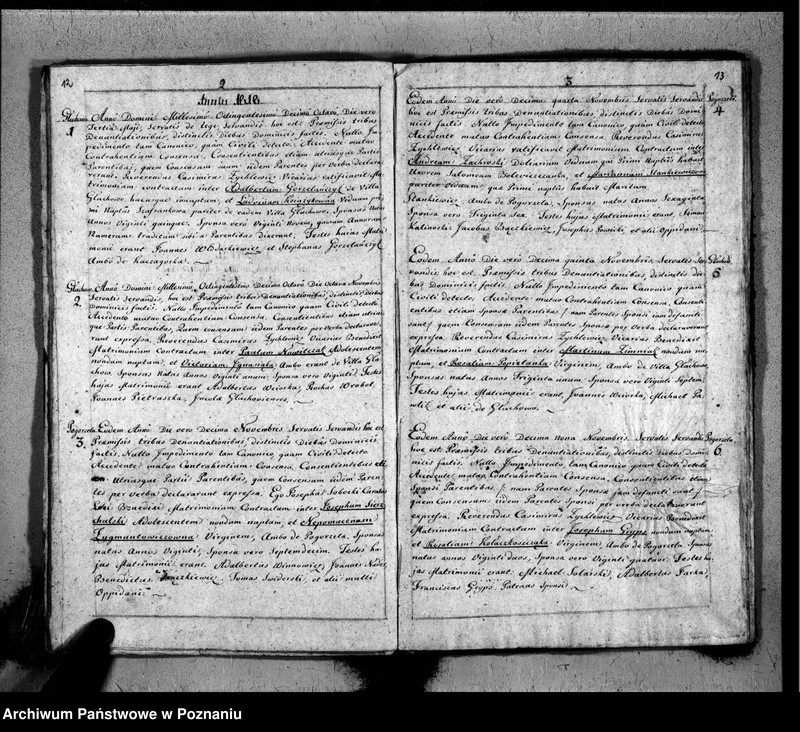 12
2
Annus 1818
Głuchowo
1
Anno Domini Millesimo Octingentesimo Decimo Octavo Die vero
Tertia Maji, servatis de lege servandis, hoc est: Præmissis tribus
Denuntiationibus, distinctis Diebus Dominicis factis, Nullo Im-
pedimento tam Canonico, quam Civili detecto, Accedente mutuo
Contrahentium Consensu, Consentientibus etiam utriusque Partis
Parentibus, quem consensum suum iidem Parentes per verba declara-
verunt Reverendus Casimirus Zychlewicz Vicarius ratificavit Ma-
trimonium contractum inter Adalbertum Gorzelańczyk de Villa
Głuchowo hucusque innuptum, et Ludovicam Viduam pri-
mi Nuptis Szafrankowa pariter de eadem Villa Głuchowo, Sponsus natus
Annos Viginti quinque, Sponsa vero Viginti Novem, quorum Annorum
Numerum traditum sibi a Parentibus dixerunt, Testes hujus Matri-
monii erant Joannes Włodarkiewicz et Stephanus Gorzelańczyk
Ambo de
Głuchowo
2
Anno Domini Millesimo, Octingentesimo Decimo Octavo Die Octava Novembris
Servatis Servandis, hoc est Præmissis tribus Denuntiationibus, distinctis Diebus
Dominicis factis, Nullo Impedimento tam Canonico quam Civili detecto,
Accedente mutuo Contrahentium Consensu, Consentientibus etiam utrius-
que Partis Parentibus, Quem consensum iidem Parentes per verba declarave-
runt expressa, Reverendus Casimirus Zychlewicz Vicarius Benedixit
Matrimonium Contractum inter Paulum Adolescentem
nondum nuptum, et Victoriam Ignasiaka, Ambo erant de Villa Głu-
chowo, Sponsus natus Annos Viginti unum, Sponsa vero Viginti, Testes
hujus Matrimonii erant Adalbertus Weioska, Rochus Wrobel,
Joannes Pietraszka, Incola Głuchoviensis
Pogorzela
3.
Eodem Anno Die vero Decima Novembris Servatis Servandis hoc est
Præmissis tribus Denuntiationibus, distinctis Diebus Dominicis
factis, Nullo Impedimento tam Canonico, quam Civili detecto
Accedente mutuo Contrahentium Consensu, Consentientibus eti-
am Utriusque Partis Parentibus, quem consensum iidem Paren-
tes per verba declararunt expressa, Ego Josephus Sobecki Curatus
Loci Benedixi Matrimonium Contractum inter Josephum Sierc-
chulski Adolescentem nondum nuptum, et Nepomucenam
Zygmantowiczowna Virginem, Ambo de Pogorzela, Sponsus
natus Annos Viginti, Sponsa vero Septemdecim, Testes hu-
jus Matrimonii erant. Adalbertus Winnowicz, Joannes Nader,
Benedictus Tomas Swiderski, et alii multi
Oppidani
13
3
Pogorzela
4
Eodem Anno Die vero Decima quarta Novembris Servatis Servandis
hoc est Præmissis tribus Denuntiationibus, distinctis Diebus Domi-
nicis factis Nullo Impedimento tam Canonico, quam Civili detecto,
Accedente mutuo Contrahentium Consensu, Reverendus Casimirus
Zychlewicz Vicarius ratificavit Matrimonium Contractum inter
Andream Zachroski Doliarium Viduum qui Primi Nuptiis habuit
Uxorem Salomeam et Mariannam Stankiewiczowa
pariter Viduam, quæ Primi nuptiis habuit Maritum
Stankiewicz Ambo de Pogorzela, Sponsus natus Annos Sexaginta
Sponsa vero Triginta Sex, Testes hujus Matrimonii erant, Simon
Kalinoski Jacobus Baczkiewicz, Josephus et alii Oppidani
Głuchowo
5
Eodem Anno Die vero Decima quinta Novembris, Servatis Ser-
vandis hoc est, Præmissis tribus Denuntiationibus, distinctis die-
bus Dominicis factis, Nullo Impedimento tam Canonico quam
Civili detecto, Accedente mutuo Contrahentium Consensu, Consenti-
entibus etiam Sponsæ Parentibus / nam Parentes Sponsi jam defuncti
sunt / quem Consensum iidem Parentes Sponsæ per Verba declararunt
expressa, Reverendus Casimirus Zychlewicz, Vicarius Benedixit
Matrimonium Contractum inter Martinum Zimniak nondum nu-
ptum, et Rosaliam Virginem, Ambo de Villa Głuchowo,
Sponsus natus Annos Triginta unum, Sponsa vero Viginti Septem,
Testes hujus Matrimonii erant, Joannes Weioska, Michael Pa-
wlik et alii de Głuchowo
Pogorzela
6.
Eodem Anno Die vero Decima nona Novembris, Servatis Servandis
hoc est, Præmissis tribus Denuntiationibus, distinctis Diebus Domi-
nicis factis, Nullo Impedimento tam Canonico, quam Civili detecto
Accedente mutuo Contrahentium Consensu, Consentientibus etiam
Sponsi Parentibus / nam Parentes Sponsæ jam defuncti sunt /
quem Consensum iidem Parentes Sponsi per verba declaraverunt
expressa, Reverendus Casimirus Zychlewicz Vicarius Benedixit
Matrimonium Contractum inter Josephum Gryps nondum nuptum
et Rosaliam Virginem, Ambo de Pogorzela, Sponsus
natus annos Viginti duos, Sponsa vero Viginti quatuor, Testes hu-
jus Matrimonii erant, Michael Solarski, Adalbertus Jarka,
Franciscus Gryps, Patruus Sponsi
Archiwum Państwowe w Poznaniu